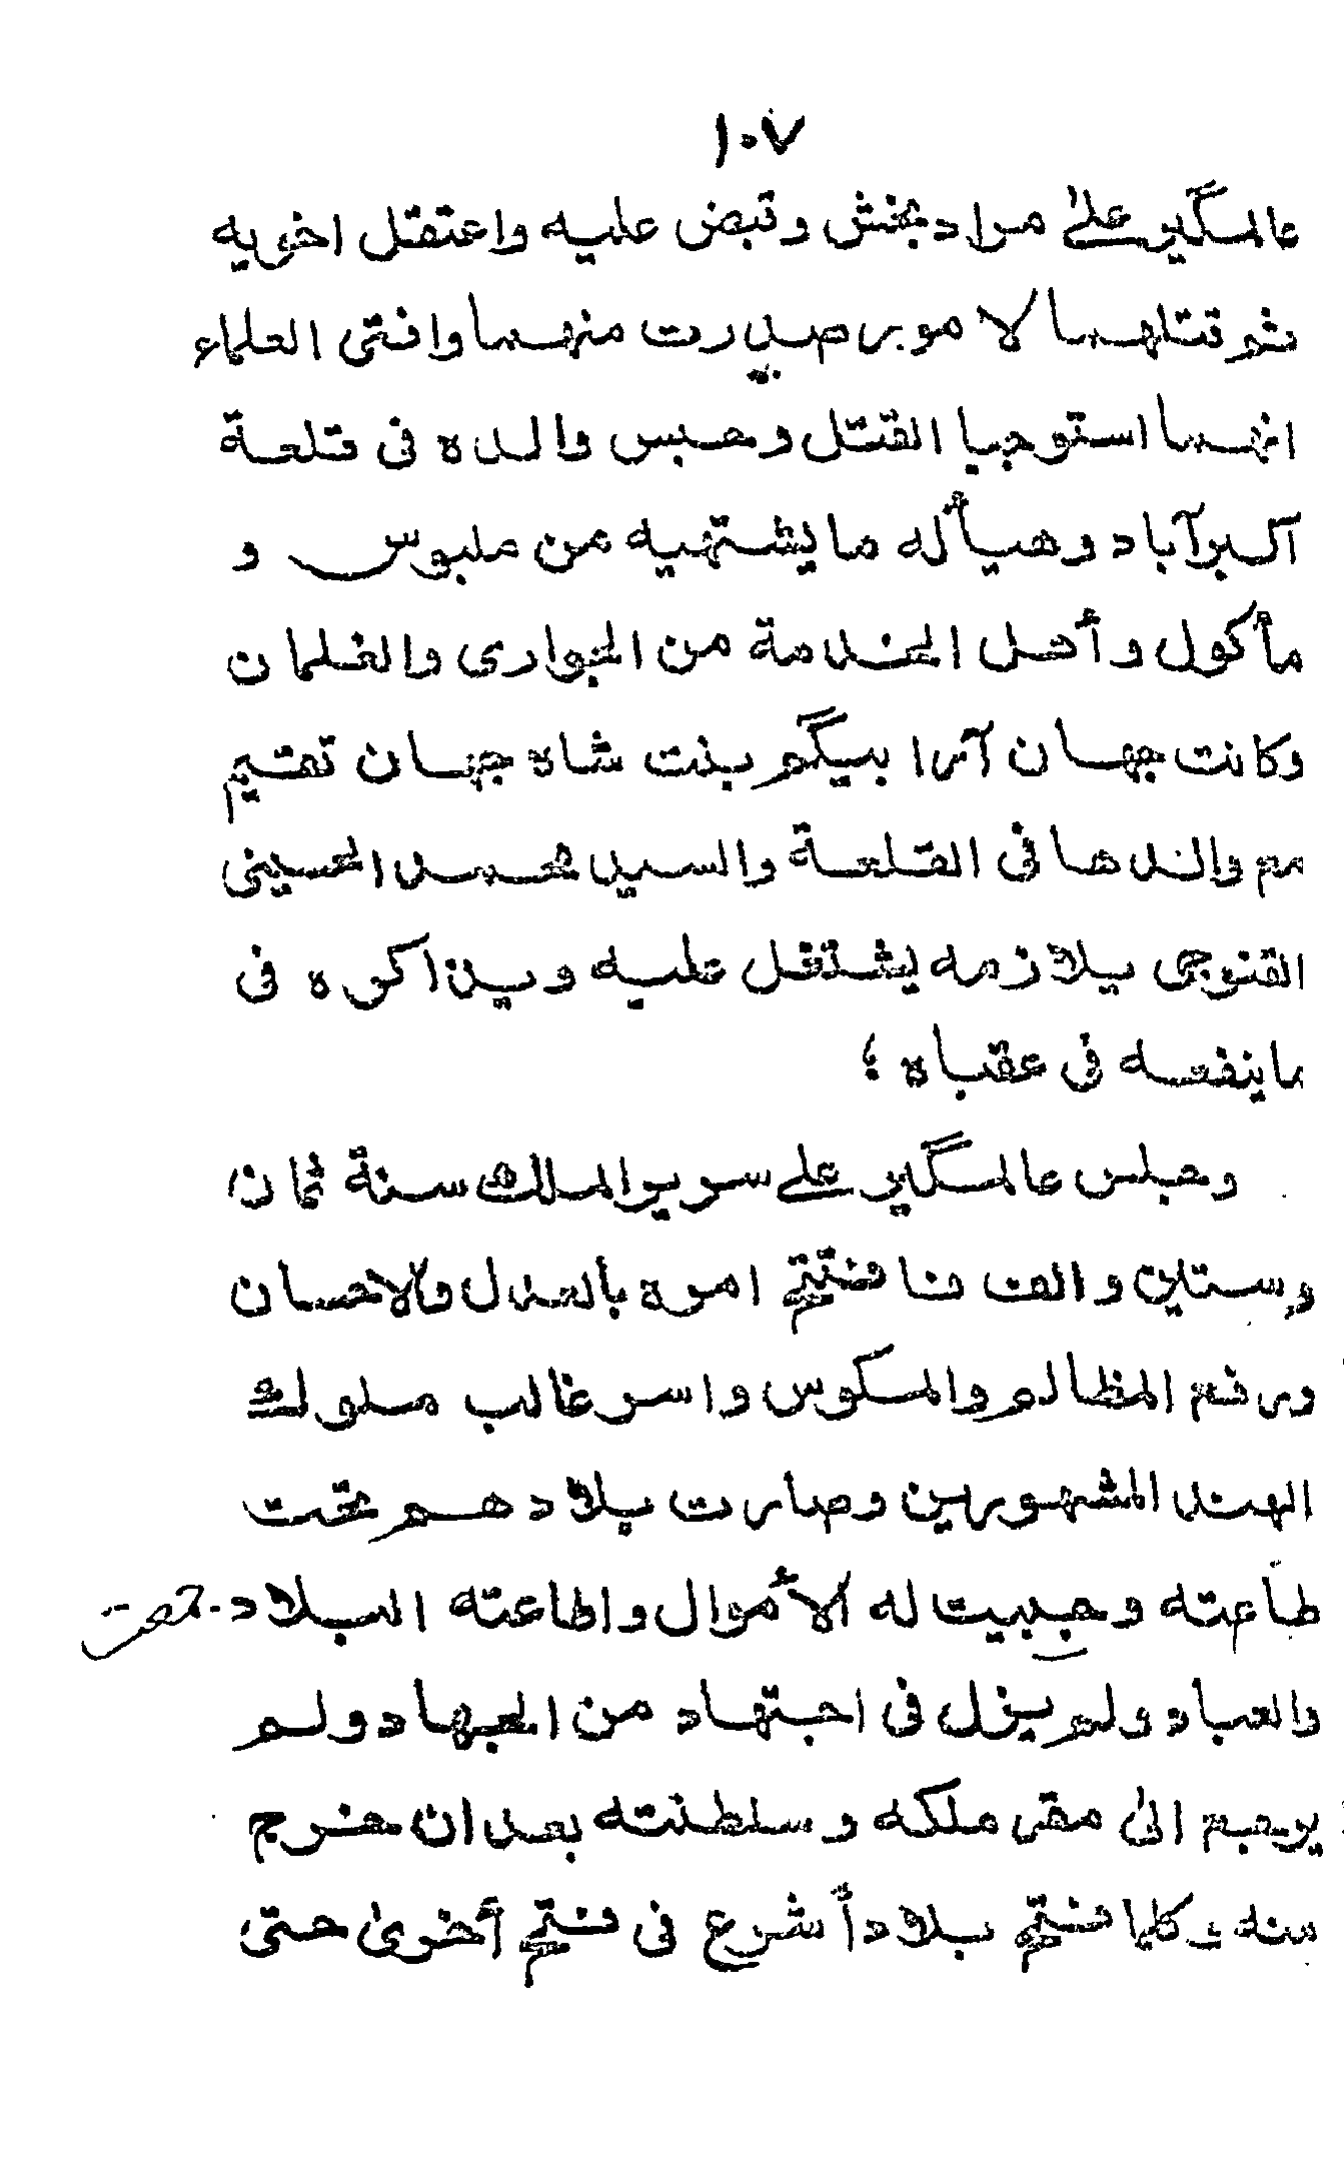 ١٠٧
عالمگير علىٰ مراد بخش وقبض عليه واعتقل اخويه
ثم قتلهما لا مور صدرت منهما وافتى العلماء
انهما استوجبا القتل وحبس والده فى قلعة
آكبرآباد وهيأله ما يشتهيه من ملبوس و
مأكول وأهل الخدمة من الجوارى والغلمان
وكانت جهان آرا بيگم بنت شاه جهان تقيم
مع والدها فى القلعة والسيد محمد الحسينى
القنوجى يلازمه يشتغل عليه ويذاكره فى
ماينفعه فى عقباه ؛
وجلس عالمگير على سرير الملك سنة ثمان
وستين والف فافتتح امره بالعدل والاحسان
ورفع المظالم والمكوس واسر غالب ملوك
الهند المشهورين وصارت بلادهم تحت
طاعته وجبيت له الأموال واطاعته البلاد
والعباد ولم يزل فى اجتهاد من الجهاد ولم
يرجع الىٰ مقر ملكه وسلطنته بعد ان خرج
منه وكلما فتح بلاداً شرع فى فتح أخرىٰ حتى